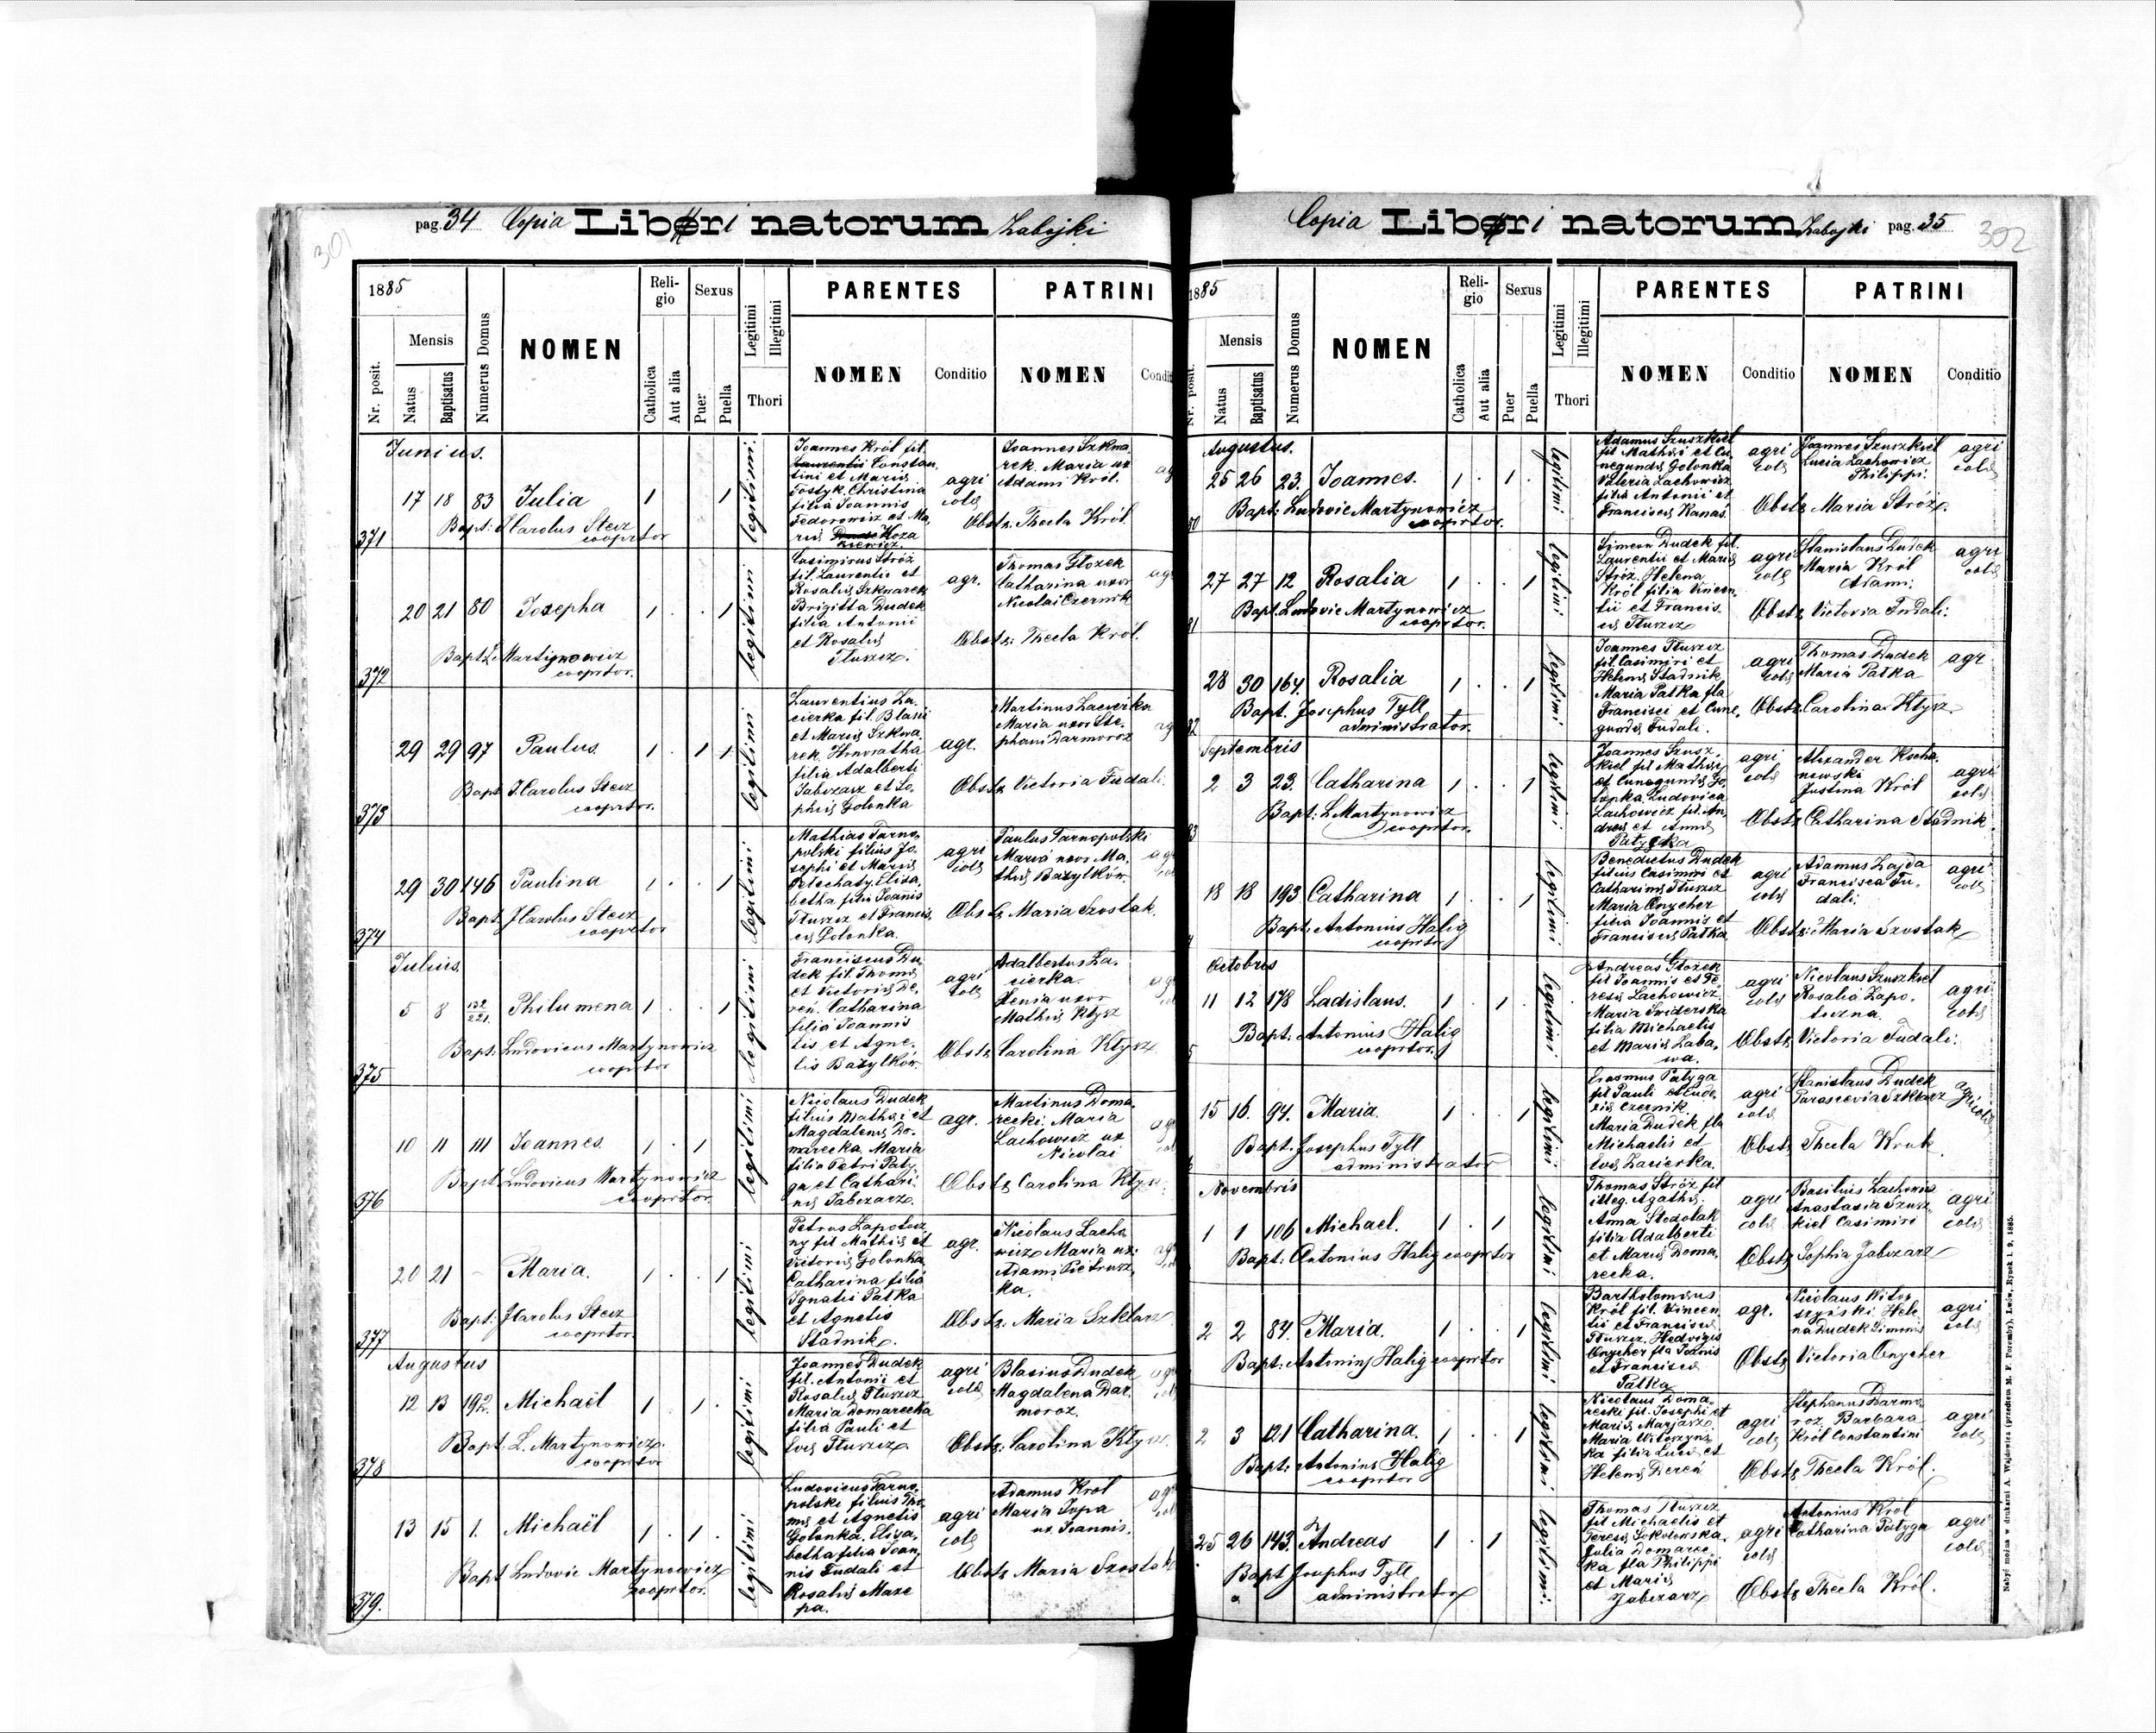 301
pag. 34 Copia Liberi natorum Zabojki
1885
Nr. posit.
Mensis
Natus
Baptisatus
Numerus Domus
NOMEN
Religio
Catholica
Aut alia
Sexus
Puer
Puella
Legitimi
Illegitimi
Thori
PARENTES
NOMEN
Conditio
PATRINI
NOMEN
Condit
Junius.
371
17 18 83 Julia 1 1
Bapt: J Carolus Stesz
cooprtor
legitimi
Joannes Król fil.
Laurentii Constan
tini et Mariæ
Tostyk, Christina
filia Joannis
Fedorowicz et Ma,
riæ Koza
kiewicz.
agri
colæ
Joannes Szkwa,
rek. Maria ux
Adami Król.
Obstz. Thecla Król.
372
20 21 80 Josepha 1 1
Bapt L. Martynowicz
cooprtor.
legitimi
Casimirus Stróż
fil. Laurentii et
Rosaliæ Szkwarek
Brigitta Dudek
filia Antonii
et Rosaliæ
Tłuszcz.
agr.
Thomas Głozek
Catharina uxor
Nicolai Czernik
Obstz: Thecla Król.
373
29 29 97 Paulus. 1 1 1
Bapt J. Carolus Stesz
cooprtor.
legitimi
Laurentius Za,
cierka fil. Blasii
et Mariæ Szkwa,
rek. Honoratha
filia Adalberti
Jabczarz et So,
phiæ Golonka
agr.
Martinus Zacierka
Maria uxor Ste,
phani Darmoroz
Obstz Victoria Fudali.
374
29 30 146 Paulina 1 1
Bapt J Carolus Stesz
cooprtor
legitimi
Mathias Tarno,
polski filius Jo,
sephi et Mariæ
Ptechaty, Elisa,
betha filia Joanis
Tłuszcz et Francis,
cæ Golonka.
agri
colæ
Paulus Tarnopolski
Maria uxor Ma,
thiæ Bazylków.
Obstz Maria Szostak.
Julius.
375
5 8 132/221 Philumena 1 1
Bapt: Ludovicus Martynowicz
cooprtor
legitimi
Franciscus Du,
dek fil. Thomæ
et Victoriæ De,
reń. Catharina
filia Joannis
lis et Agne,
lis Bazylków.
agri
colæ
Adalbertus Za,
cierka.
Xenia uxor
Mathiæ Kłysz
Obstz Carolina Kłysz
376
10 11 111 Joannes 1 1
Bapt Ludovicus Martynowicz
cooprtor.
legitimi
Nicolaus Dudek
filius Mathiæ et
Magdalenæ Do,
marecka, Maria
filia Petri Paty,
ga et Cathari
næ Jabczarz.
agr.
Martinus Doma,
recki. Maria
Lachowicz ux
Nicolai
Obstz Carolina Kłysz
377
20 21 - Maria. 1 1
Bapt: J Carolus Stesz
cooprtor.
legitimi
Petrus Łapotocz,
ny fil Mathiæ et
Victoriæ Golonka
Catharina filia
Ignatii Patka
et Agnetis
Stadnik.
agr.
Nicolaus Lacho
wicz Maria ux:
Adami Pietrusz,
ka.
Obstz. Maria Szklarz
Augustus
378
12 13 192 Michaël 1 1
Bapt L. Martynowicz.
cooprtor
legitimi
Joannes Dudek
fil. Antonii et
Rosaliæ Tłuszcz
Maria Domarecka
filia Pauli et
Evæ Tłuszcz
agri
colæ
Blasius Dudek
Magdalena Dar,
moroz.
Obstz. Carolina Kłysz
379.
13 15 1. Michaël 1 1
Bapt Ludovic Martynowicz
cooprtor.
legitimi
Ludovicus Tarno,
polski filius Tho
mæ et Agnetis
Golonka. Elisa,
betha filia Joan,
nis Fudali et
Rosaliæ Maze
pa.
agri
colæ
Adamus Król
Maria Jopa
ux. Joannis.
Obstz Maria Szostak
Copia Liberi natorum Zabojki pag. 35
302
1885
Nr. posit.
Mensis
Natus
Baptisatus
Numerus Domus
NOMEN
Religio
Catholica
Aut alia
Sexus
Puer
Puella
Legitimi
Illegitimi
Thori
PARENTES
NOMEN
Conditio
PATRINI
NOMEN
Conditio
Augustus.
25 26 23. Joannes. 1 1
Bapt: Ludovic Martynowicz
cooprtor.
legitimi
Adamus Szuszkiel
fil Mathiæ et Cu,
negundæ Golonka
Valeria Lachowicz
filia Antonii et
Franciscæ Kanas.
agri
colæ
Joannes Szuszkiel
Lucia Lachowicz
Philippi.
agri
colæ
Obstz Maria Stróż.
27 27 12 Rosalia 1 1
Bapt. Ludovic Martynowicz
cooprtor.
legitimi
Simeon Dudek fil.
Laurentii et Mariæ
Stróż. Helena
Król filia Vincen,
tii et Francis.
cæ Tłuszcz
agri
colæ
Stanislaus Dudek
Maria Król
Adami.
agri
colæ
Obstz Victoria Fudali:
28 30 164. Rosalia 1 1
Bapt. Josephus Tyll
administrator.
legitimi
Joannes Tłuszcz
fil. Casimiri et
Helenæ Stadnik
Maria Patka fla
Francisci et Cune,
gundæ Fudali.
agri
colæ
Thomas Dudek
Maria Patka
agr
Obstz Carolina Kłysz.
Septembris
2 3 23. Catharina 1 1
Bapt: L Martynowicz
cooprtor.
legitimi
Joannes Szusz,
kiel fil Mathiæ
et Cunegundæ Go,
lonka. Ludovica
Lachowicz fil. An,
dreæ et Annæ
Patycka
agri
colæ
Alexander Kocha,
nowski
Justina Król
agri
colæ
Obstz Catharina Stadnik
18 18 193 Catharina 1 1
Bapt: Antonius Halig
cooprtor
legitimi
Benedictus Dudek
filius Casimiri et
Catharinæ Tłuszcz
Maria Onycher
filia Joannis et
Franciscæ Patka
agri
colæ
Adamus Zajda
Francisca Fu,
dali.
agri
colæ
Obstz: Maria Szostak
Octobris
11 12 178 Ladislaus. 1 1
Bapt: Antonius Halig
cooprtor.
legitimi
Andreas Głozek
fil Joannis et Te,
resiæ Lachowicz
Maria Swiderska
filia Michaelis
et Mariæ Zaba,
wa.
agri
colæ
Nicolaus Szuszkiel
Rosalia Łapo,
tuzna.
agri
colæ
Obstz Victoria Fudali:
15 16. 94. Maria. 1 1
Bapt. Josephus Tyll
administrator
legitimi
Erasmus Patyga
fil Pauli et Eudo
xiæ Czernik.
Maria Dudek fla
Michaelis et
Evæ Zacierka.
agri
colæ
Stanislaus Dudek
Parascevia Szklarz
agri
colæ
Obstz Thecla Kruk
Novembris
1 1 106 Michael. 1 1
Bapt: Antonius Halig cooprtor
legitimi
Thomas Stróż fil
illeg. Agathæ.
Anna Stedolak
filia Adalberti
et Mariæ Doma,
recka.
agri
colæ
Basilius Lachowicz
Anastasia Szusz,
kiel Casimiri
agri
colæ
Obstz Sophia Jabczarz
2 2 84. Maria. 1 1
Bapt: Antonius Halig cooprtor
legitimi
Bartholomæus
Król fil. Vincen
tii et Franciscæ
Tłuszcz. Hedvigis
Onycher fla Joanis
et Franciscæ
Patka
agr.
Nicolaus Witor
szyński Hele
na Dudek Simonis
agri
colæ
Obstz Victoria Onycher
2 3 121 Catharina. 1 1
Bapt: Antonius Halig
cooprtor
legitimi
Nicolaus Doma,
recki fil. Josephi et
Mariæ Marjasz
Maria Witorzyńs
ka filia Lucæ et
Helenæ Dereń
agri
colæ
Stephanus Darmo,
roz, Barbara
Król Constantini
agri
colæ
Obstz Thecla Król.
25 26 143. Andreas 1 1
Bapt Josephus Tyll
administrator
legitimi
Thomas Tłuszcz
fil Michaelis et
Teresiæ Sokolowska.
Julia Domarec
ka fla Philippi
et Mariæ
Jabczarz
agri
colæ
Antonius Król
Catharina Patyga
agri
colæ
Obstz Thecla Król.
Nabyć można w drukarni A. Wajdowicza (przedtem M. F. Poremby), Lwów, Rynek l. 9. 1885.